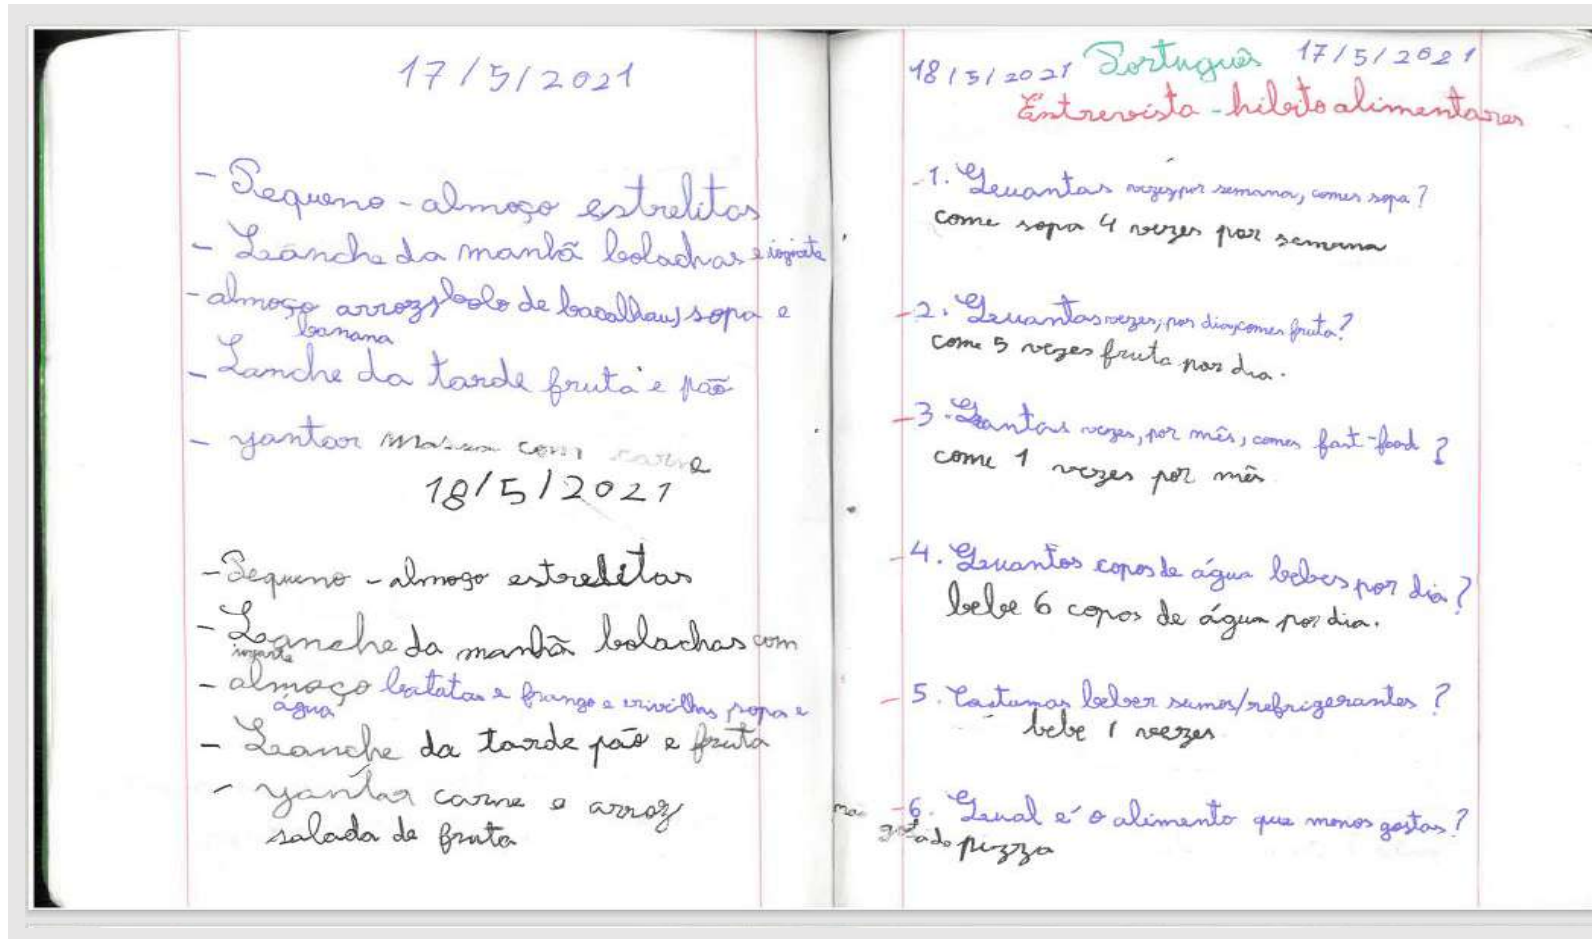 17/5/2021
- Pequeno-almoço estrelitas
- Lanche da manhã bolachas e iogurte
- almoço arroz, bolo de bacalhau, sopa e
banana
- Lanche da tarde fruta e pão
- yantar massa com carne
18/5/2021
- Pequeno-almoço estrelitas
- Lanche da manhã bolachas com
iogurte
- almoço batatas e frango e ervilhas sopa e
água
- Lanche da tarde pão e fruta
- yantar carne e arroz
salada de fruta
18/5/2021 Português 17/5/2021
Entrevista - hábito alimentares
- 1. Quantas vezes por semana, comes sopa?
come sopa 4 vezes por semana
- 2. Quantas vezes, por dia, comes fruta?
come 5 vezes fruta por dia.
- 3. Quantas vezes, por mês, comes fast-food?
come 1 vezes por mês
- 4. Quantos copos de água bebes por dia?
bebe 6 copos de água por dia.
- 5. Costumas beber sumos/refrigerantes?
bebe 1 vezes
- 6. Qual é o alimento que menos gostas?
não gosta do pizza